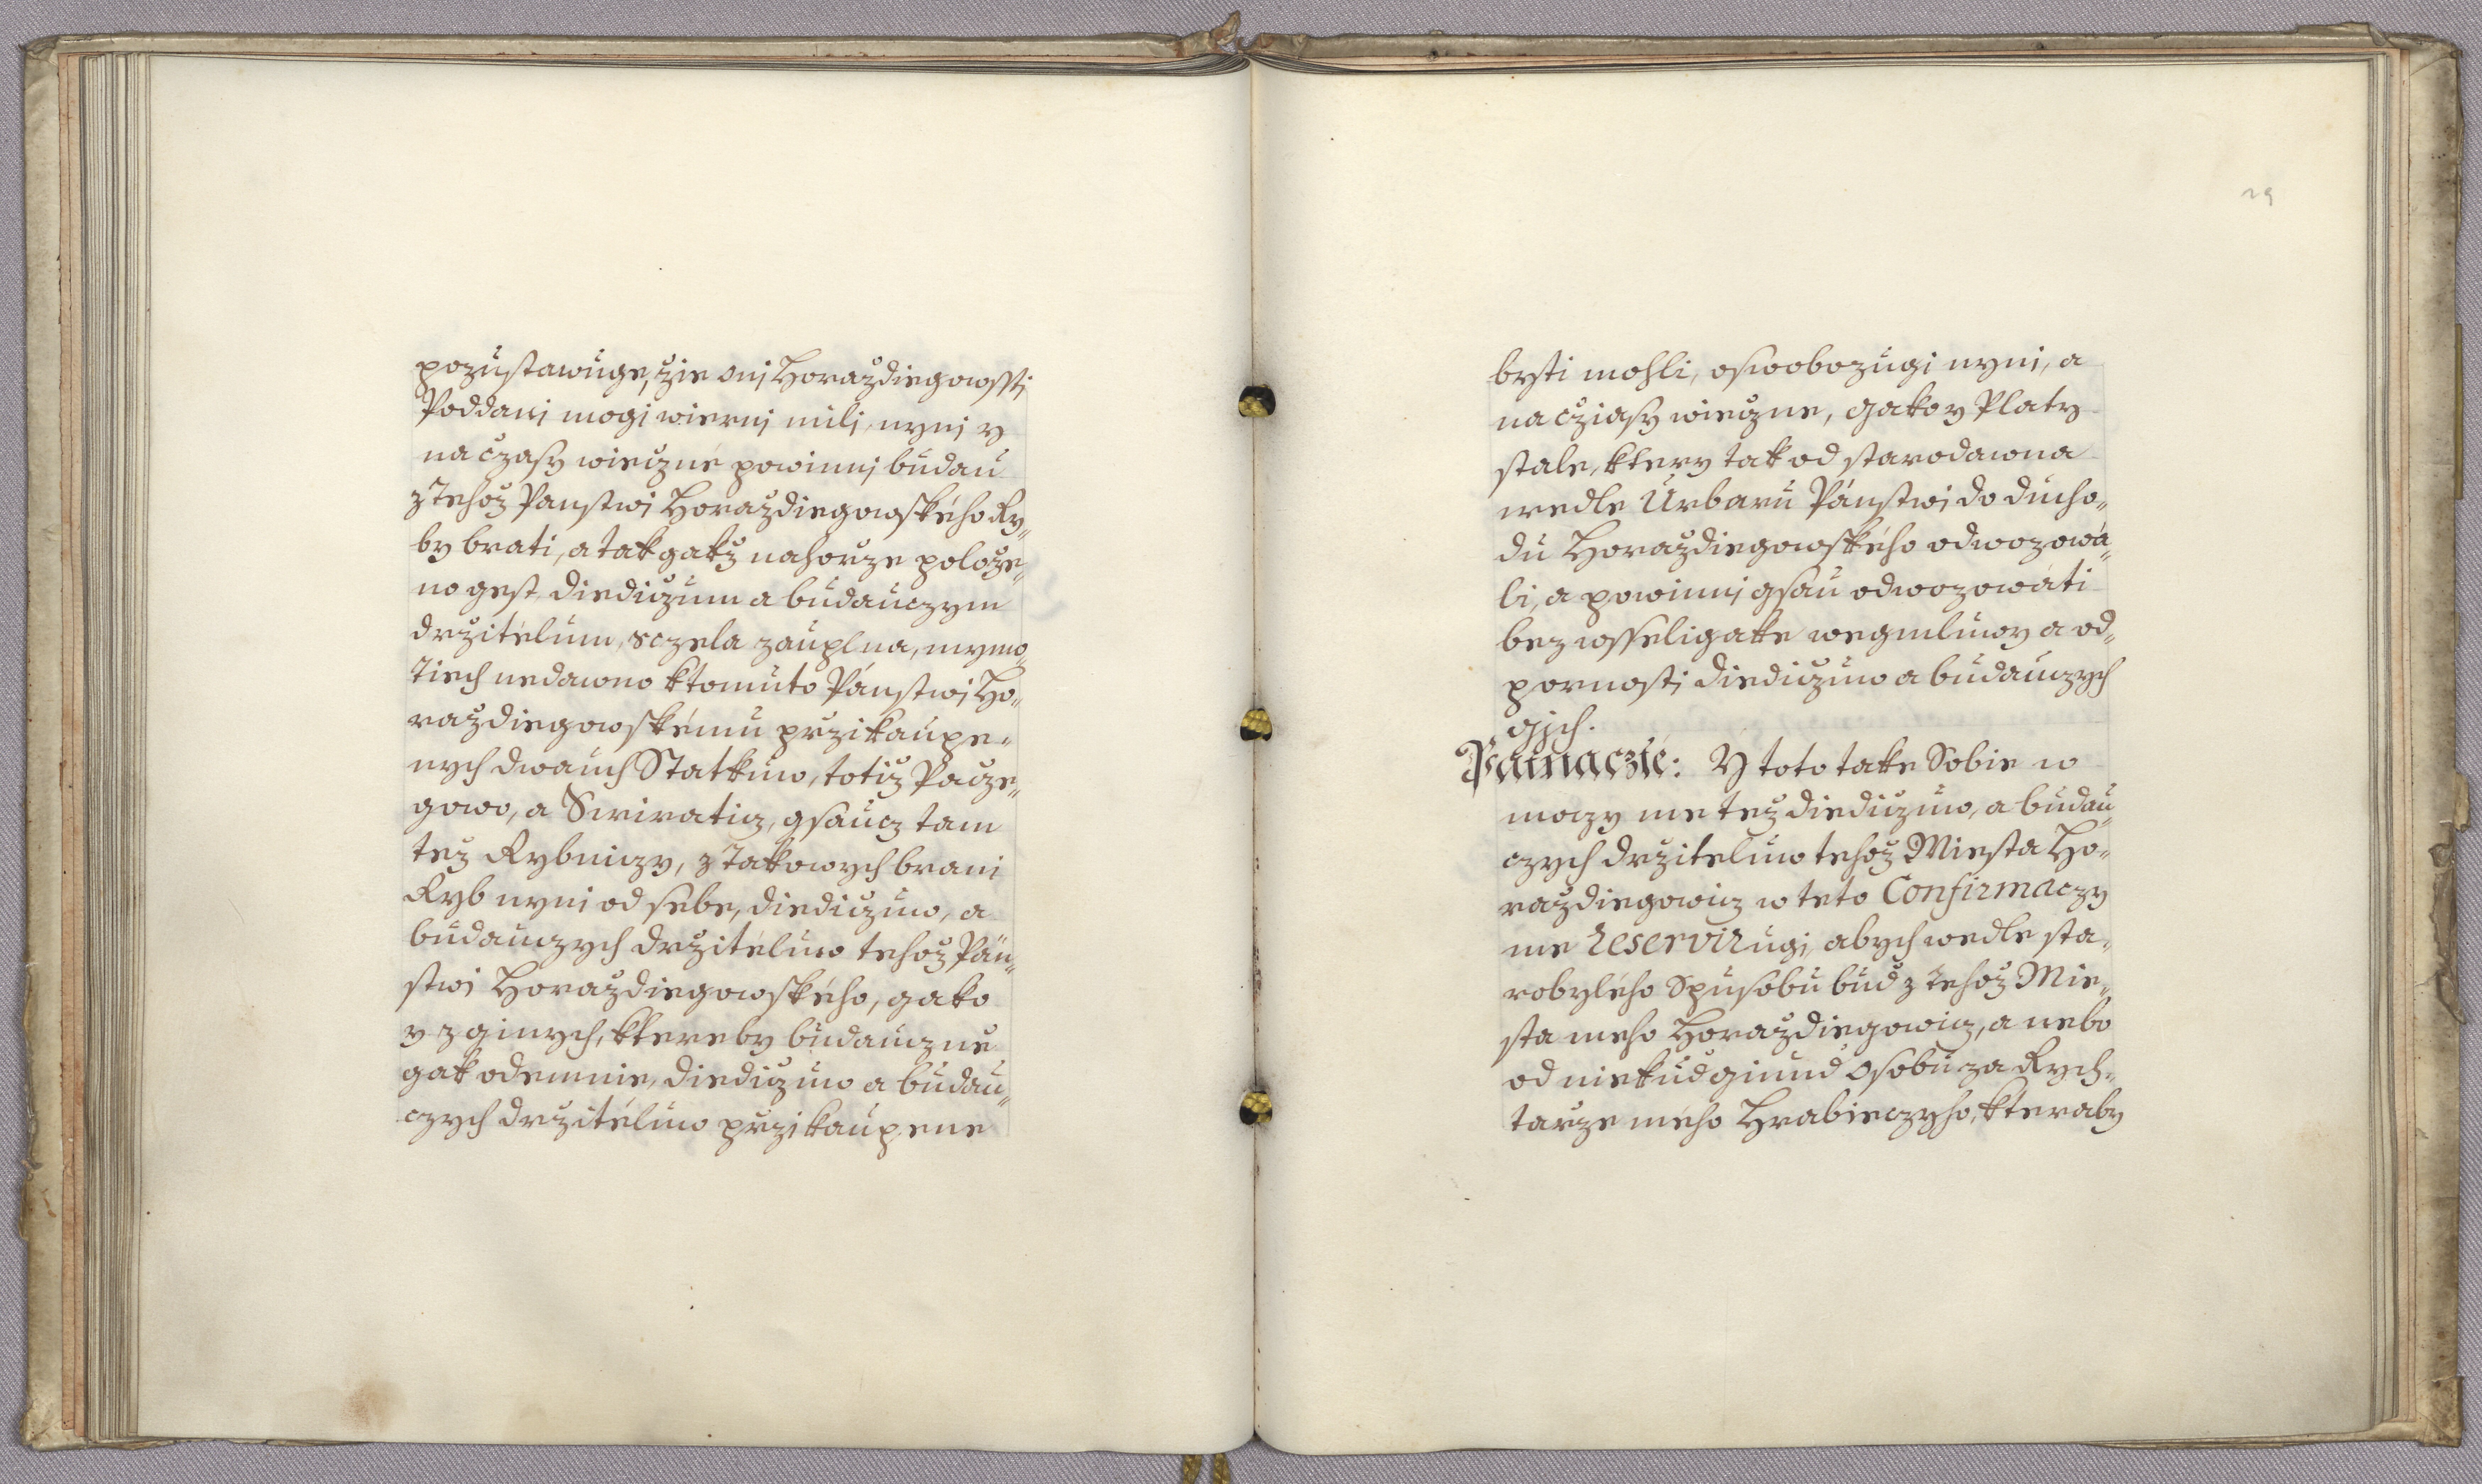 pozustawuge, žie oni Horaždiegowssti
Poddani mogi wierni mili, nyni y
na czasy wieczné powinni budau
z tehož Panstwi Horaždiegowského Ry„
by brati, a tak gakž nahorže polože„
no gest, diediczum a budauczym
držitélum, sczela zauplna, mymo„
tiech nedawno k tomuto Pánstwi Ho„
raždiegowskému pržikaupe„
nych dwauch Statkuw, totiž Pacze„
gowo, a Swiraticz, gsaucz tam
tež Rybniczy, z takowych brani
Ryb nyni od sebe, diediczuw, a
budauczych držitéluw tehož Pán„
stwi Horaždiegowského, gako
y z ginych, ktereby budauczne
gak odemnie, diediczuw a budau„
czych držitéluw pržikaupene
29
bysti mohli, oswobozugi nyni, a
na cziasy wieczne, gakoy Platy
stale, ktery tak od starodawna
wedle Urbaru Pánstwi do ducho„
du Horaždiegowského odwozowá„
li, a powinni gsau odwozowáti
bez wsseligake wegmluwy a od„
pornosti diediczuw a budauczych
gjch.
Patnaczté: Y toto take Sobie w
moczy me tež diediczuw, a budau„
czych držiteluw tehož Miesta Ho„
raždiegowicz w teto Confirmaczy
me reservirugi, abych wedle sta„
robylého Spusobu bud z tehož Mie„
sta meho Horaždiegowicz, a nebo
od niekud ginud Osobu za Rych„
tarže mého Hrabieczyho, kteraby